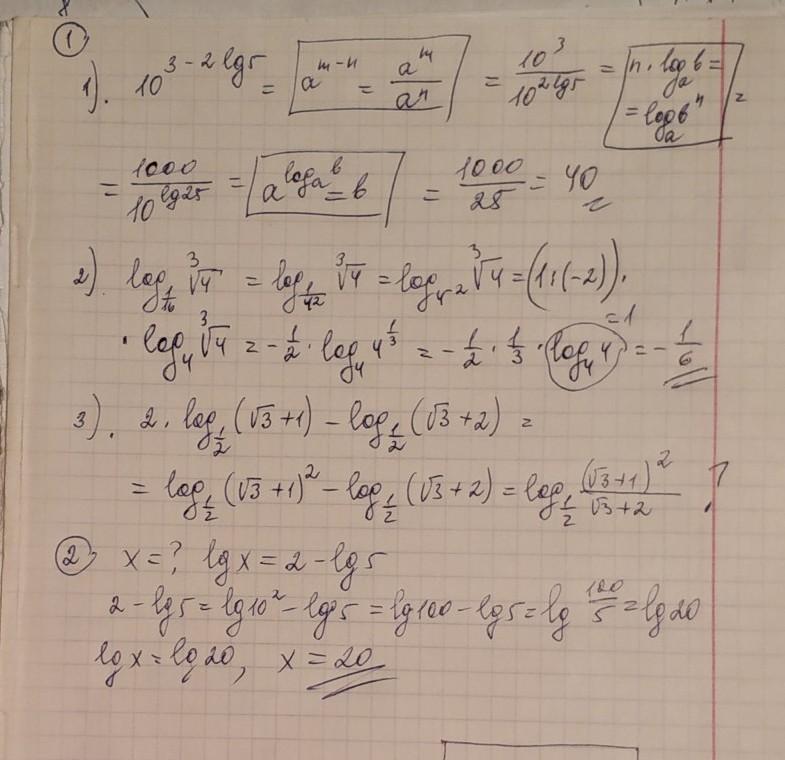 ①
1). 10^{3-2lg5} = a^{m-n} = a^m/a^n = 10^3/10^{2lg5} = n·log_a b = log_a b^n =
= 1000/10^{lg25} = a^{log_a b} = b = 1000/25 = 40
2). log_{1/16} ∛4 = log_{1/4^2} ∛4 = log_{4^{-2}} ∛4 = (1:(-2))·
· log_4 ∛4 = -1/2 · log_4 4^{1/3} = -1/2 · 1/3 · log_4 4 = -1/6
=1
3). 2·log_{1/2}(√3+1) - log_{1/2}(√3+2) =
= log_{1/2}(√3+1)^2 - log_{1/2}(√3+2) = log_{1/2} (√3+1)^2/(√3+2) ?
② x=? lg x = 2 - lg5
2 - lg5 = lg10^2 - lg5 = lg100 - lg5 = lg 100/5 = lg20
lg x = lg20, x = 20